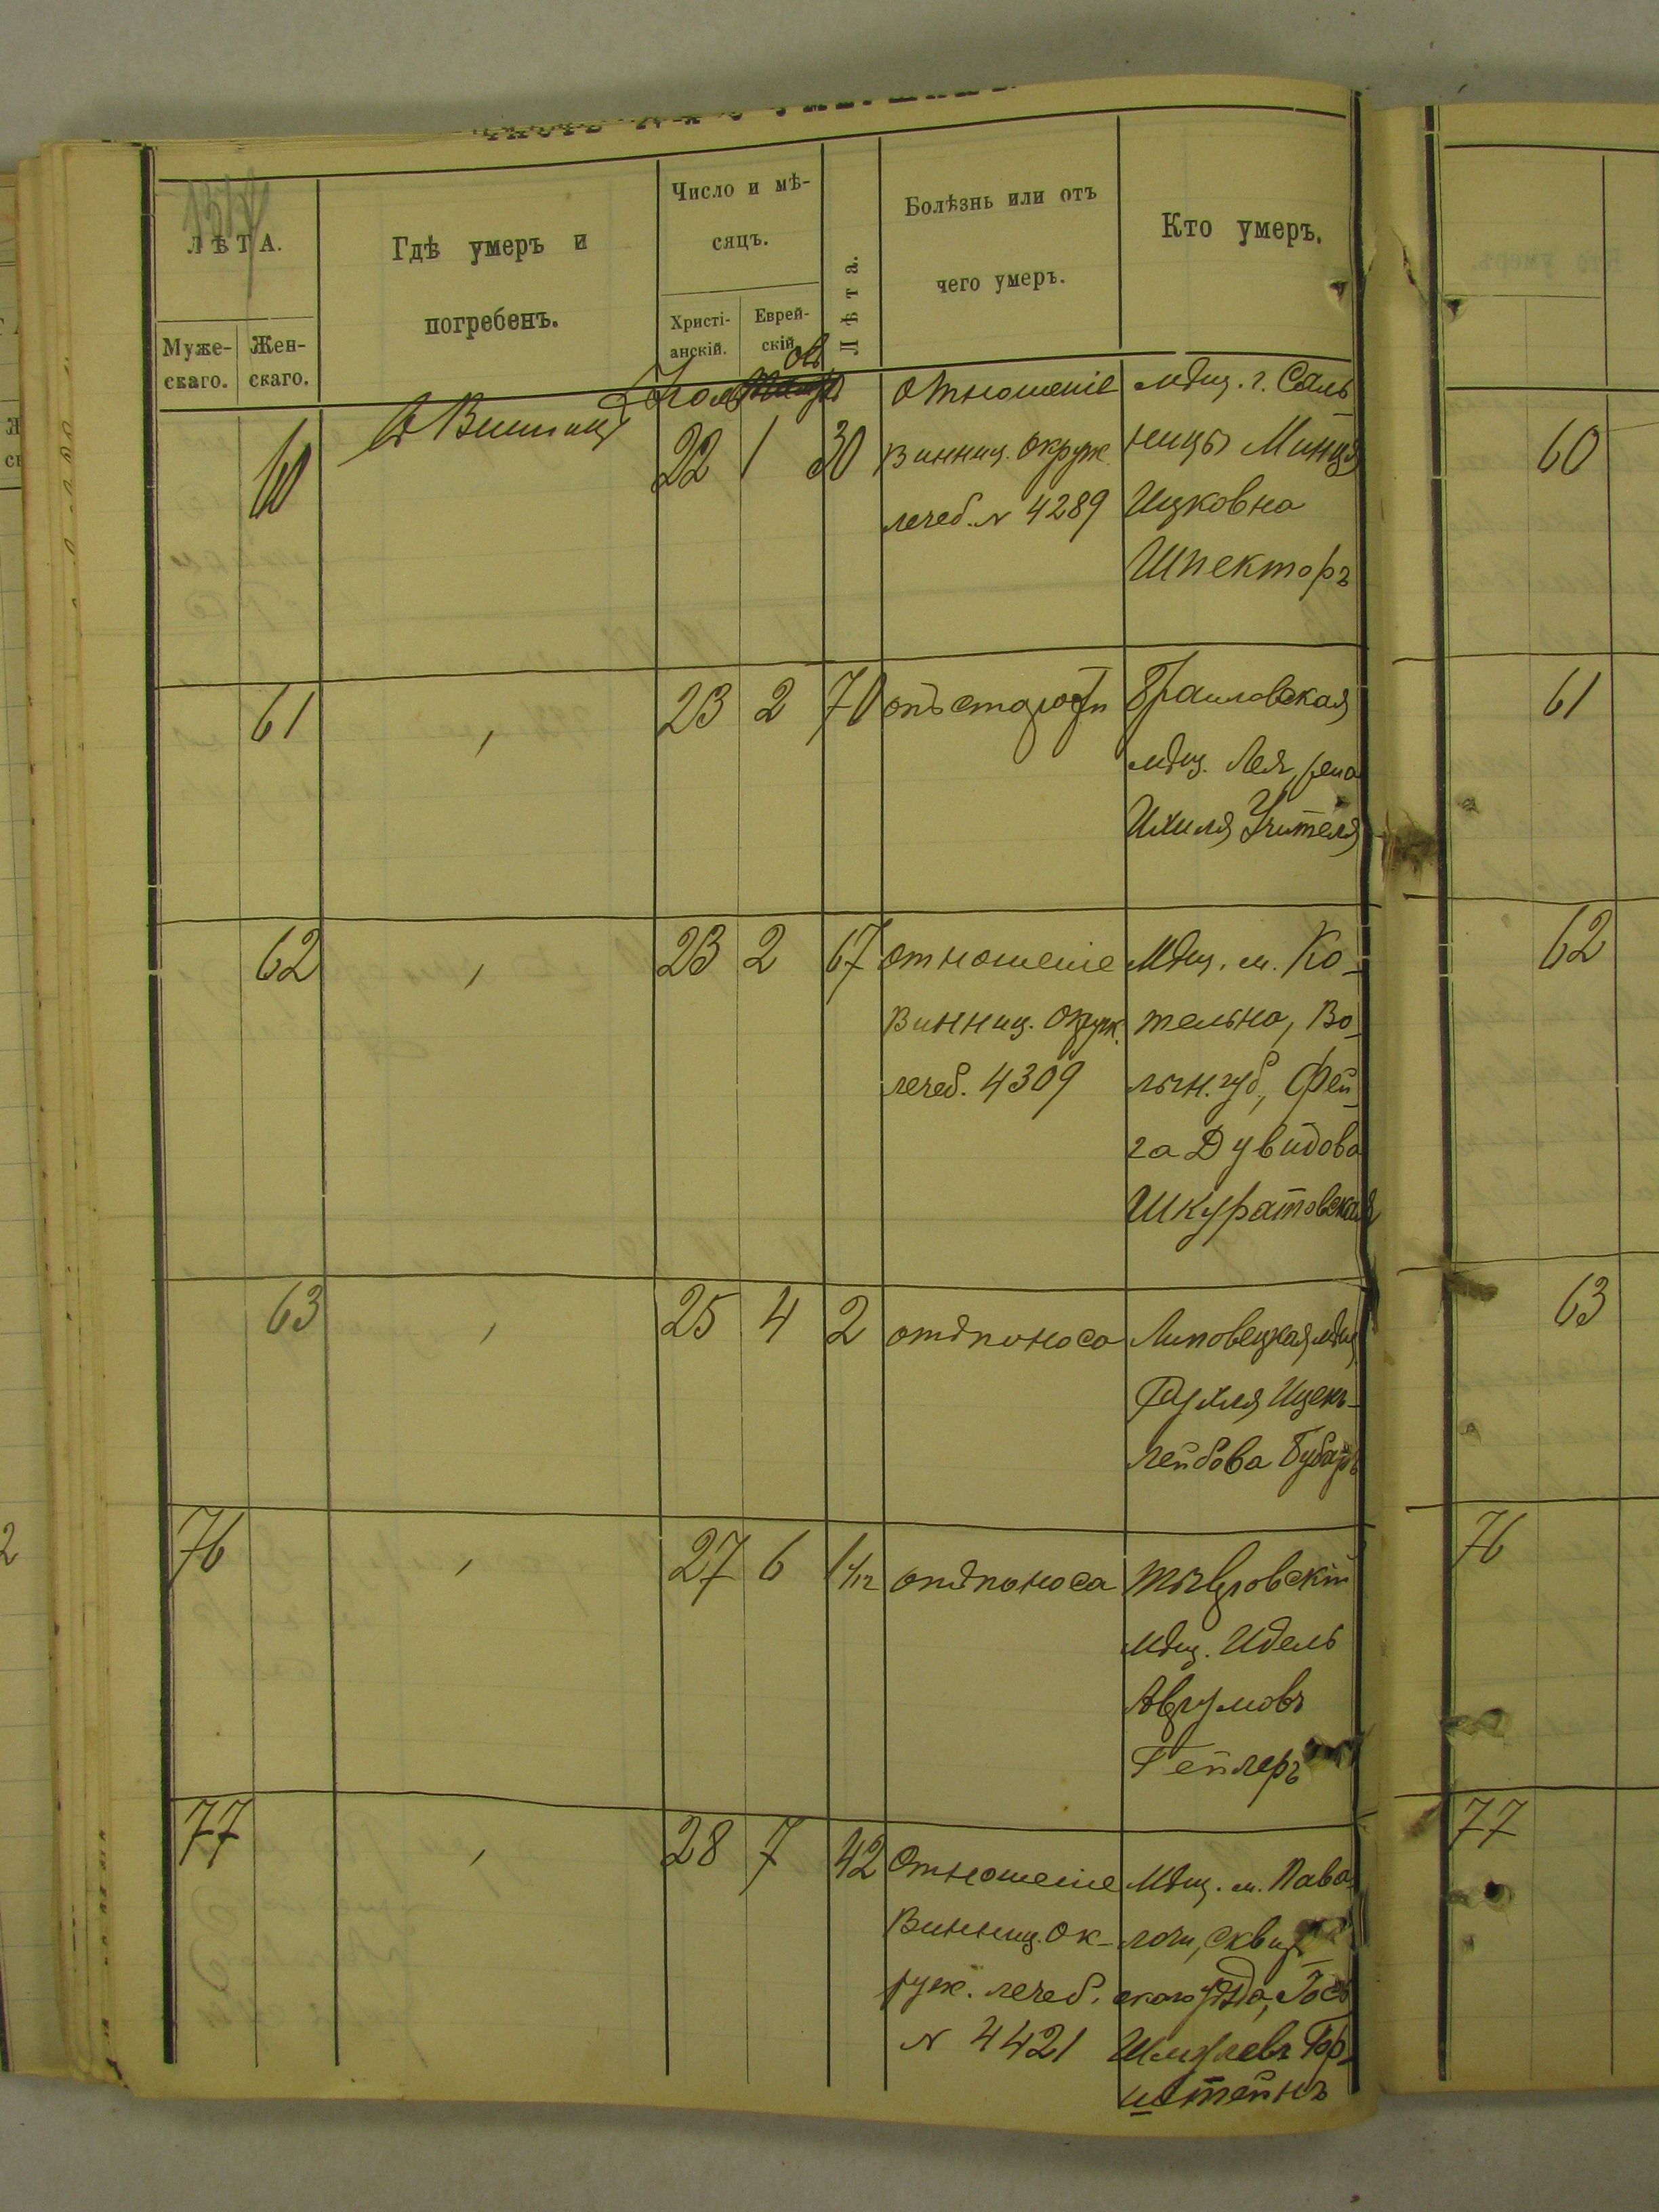 ЛѢТА.
Муже-
скаго.
Жен-
скаго.
Гдѣ умеръ и
погребенъ.
Число и мѣ-
сяцъ.
Христі-
анскій.
Еврей-
скій
Лѣта.
Болѣзнь или отъ
чего умеръ.
Кто умеръ.
60
22 1 30
Отношеніе
Винниц. Окруж.
лечеб. № 4289
мѣщ. г. Саль-
ницы Минця
Ицковна
Шпекторъ
61 23 2 70
отъ старости
Браиловская
мѣщ. Лея жена
Ихиля Учителя
62 23 2 67
отношеніе
Винниц. Окруж.
лечеб. 4309
Мѣщ. м. Ко-
тельна, Во-
лын. губ., Фей-
га Дувидова
Шкуратовская
63 25 4 2
отъ поноса
Липовецкая мѣщ.
Рухля Ицекъ-
Лейбова
76 27 6 1 1/12
отъ поноса
Тывровскій
мѣщ. Идель
Аврумовъ
Гейлеръ
77 28 7 42
Отношеніе
Винниц. Ок-
руж. лечеб.
№ 4421
Мѣщ. м. Паво-
лочи, Сквир-
скаго уѣзда,
Шмулевъ Гор-
штейнъ
60
61
62
63
76
77